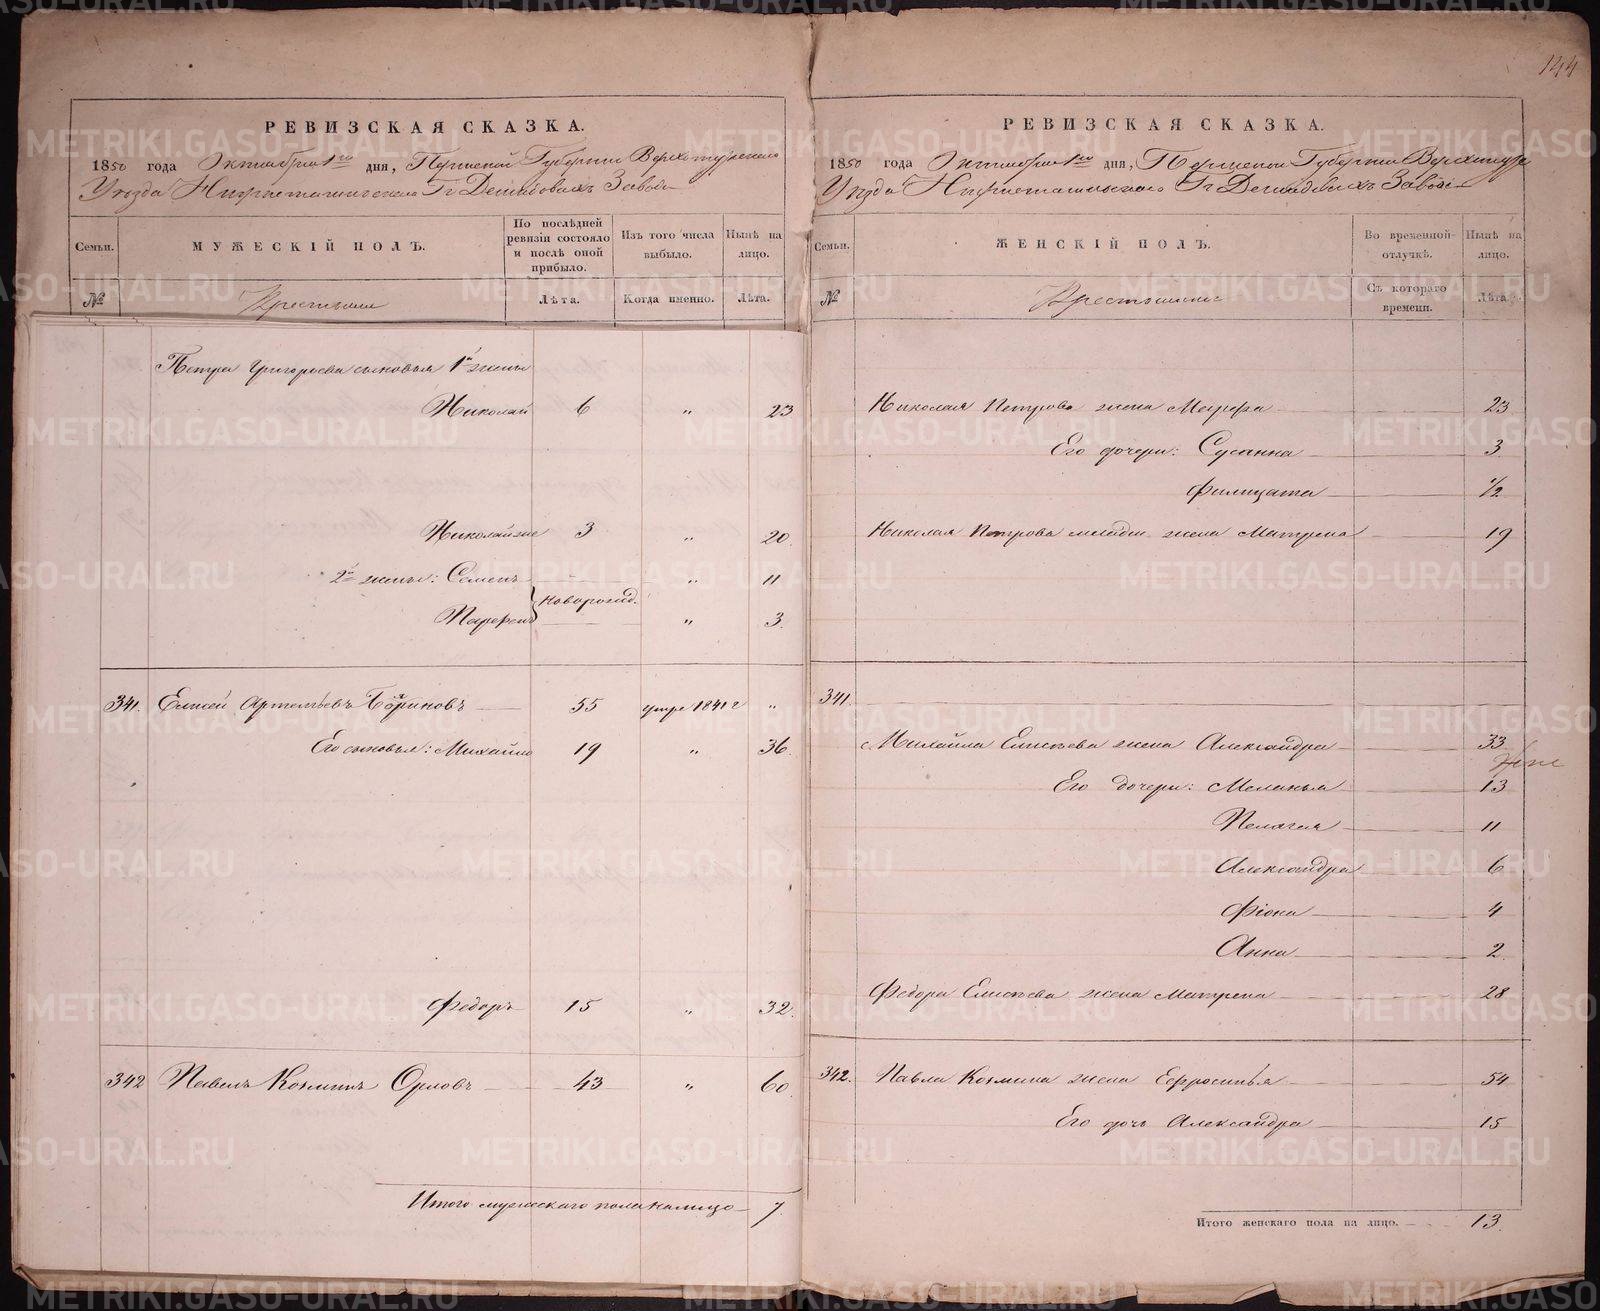 144
РЕВИЗСКАЯ СКАЗКА.
1850 года Октября 1го дня, Пермской Губернии Верхотурскаго
Уезда Нижнетагильскаго Гг Демидовыхъ Завода
Семьи. МУЖЕСКІЙ ПОЛЪ. По послѣдней ревизіи состояло и послѣ оной прибыло. Изъ того числа выбыло. Нынѣ на лицо.
№ Крестьяне Лѣта. Когда именно. Лѣта.
Петра Григорьева сыновья 1й жены
Николай 6 " 23
Николай же 3 " 20.
2й жены: Семенъ новорожд. " 11
Парфенъ " 3.
341. Елисей Артемьевъ умре 1841 г "
55
Его сыновья: Михайло 19 " 36.
Федоръ 15 " 32.
342 Павелъ Козминъ Орловъ 43 " 60.
Итого мужескаго пола налицо 7.
РЕВИЗСКАЯ СКАЗКА.
1850 года Октября 1го дня, Пермской Губернии Верхотурс
Уезда Нижнетагильскаго Гг Демидовыхъ Завода
Семьи. ЖЕНСКІЙ ПОЛЪ. Во временной отлучкѣ. Нынѣ на лицо.
№ Крестьянки Съ котораго времени. Лѣта.
Николая Петрова жена Марфа 23
Его дочери: Сусанна 3
Филицата 1/2
Николая Петрова жена Матрена 19
341.
Михайла Елисеева жена Александра 33
Его дочери: Меланья 13
Пелагея 11
Александра 6
Фіона 4
Анна 2.
Федора Елисеева жена Матрена 28
342. Павла Козмина жена Ефросинья 54
Его дочь Александра 15
Итого женскаго пола на лицо. 13.
METRIKI.GASO-URAL.RU